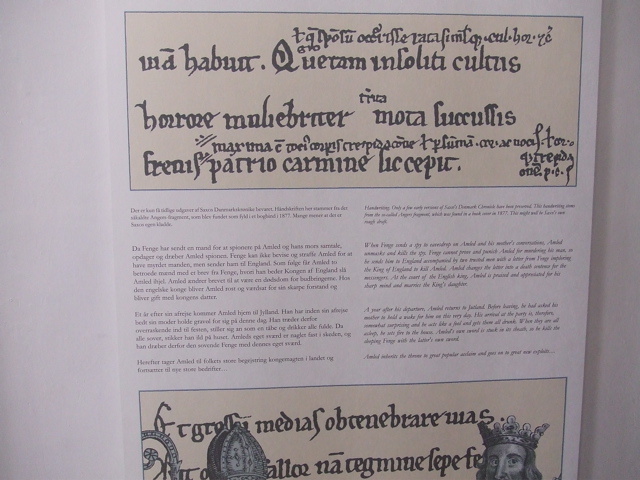 mā habuit. Quetam insoliti cultus
horrore muliebriter mota succussis
frenis patrio carmine sic cepit.
Der er kun få tidlige udgaver af Saxos Danmarkskrønike bevaret. Håndskriften her stammer fra det
såkaldte Angers fragment, som blev fundet som fyld i et bogbind i 1877. Mange mener at det er
Saxos egen kladde.
Handwriting: Only a few early versions of Saxo's Denmark Chronicle have been preserved. This handwriting stems
from the so-called Angers fragment, which was found in a book cover in 1877. This might well be Saxo's own
rough draft.
Da Fenge har sendt en mand for at spionere på Amled og hans mors samtale,
opdager og dræber Amled spionen. Fenge kan ikke bevise og straffe Amled for at
have myrdet manden, men sender ham til England. Som følge får Amled to
betroede mænd med et brev fra Fenge, hvori han beder Kongen af England slå
Amled ihjel. Amled ændrer brevet til at være en dødsdom for budbringerne. Hos
den engelske konge bliver Amled rost og værdsat for sin skarpe forstand og
bliver gift med kongens datter.
Et år efter sin afrejse kommer Amled hjem til Jylland. Han har inden sin afrejse
bedt sin moder holde gravøl for sig på denne dag. Han træder derfor
overraskende ind til festen, stiller sig an som en tåbe og drikker alle fulde. Da
alle sover, stikker han ild på huset. Amleds eget sværd er naglet fast i skeden, og
han dræber derfor den sovende Fenge med dennes eget sværd.
Herefter tager Amled til folkets store begejstring kongemagten i landet og
fortsætter til nye store bedrifter…
When Fenge sends a spy to eavesdrop on Amled and his mother's conversations, Amled
unmasks and kills the spy. Fenge cannot prove and punish Amled for murdering his man, so
he sends him to England accompanied by two trusted men with a letter from Fenge imploring
the King of England to kill Amled. Amled changes the letter into a death sentence for the
messengers. At the court of the English king, Amled is praised and appreciated for his
sharp mind and marries the King's daughter.
A year after his departure, Amled returns to Jutland. Before leaving, he had asked his
mother to hold a wake for him on this very day. His arrival at the party is, therefore,
somewhat surprising and he acts like a fool and gets them all drunk. When they are all
asleep, he sets fire to the house. Amled's own sword is stuck in its sheath, so he kills the
sleeping Fenge with the latter's own sword.
Amled inherits the throne to great popular acclaim and goes on to great new exploits…
Et gressū medias obtenebrare uias.
nā tegmine sepe fe